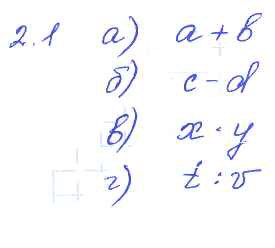 2.1 а) a + b
б) c - d
в) x · y
г) t : v